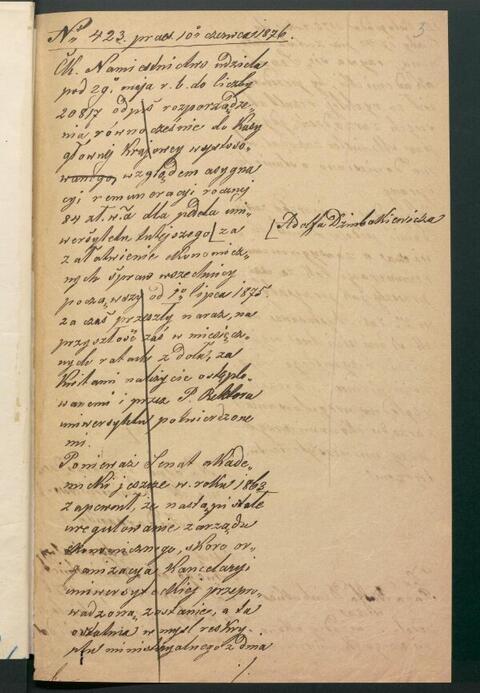 3
Nr 423. praes. 10go czerwca 1876.
Ck. Namiestnictwo udziela
pod 29. maja r. b. do liczby
20817 odpis rozporządze„
nia równocześnie do Kasy
głównej Krajowej wystoso„
wanego, względem asygna
cyi remuneracyi rocznej
84 zł. w. a. dla pedela uni„
wersytetu tutejszego [ za
[ Adolfa Dzimbatkiewicza
załatwienie ekonomicz„
nych spraw wszechnicy
począwszy od 1go lipca 1875.
za czas przeszły naraz, na
przyszłość zaś w miesięcz„
nych ratach z dołu, za
kwitami należycie ostęplo„
wanemi i przez P. Rektora
uniwersytetu potwierdzone
mi.
Ponieważ Senat akade„
micki jeszcze w roku 1863
zapewnił, że nastąpi stałe
uregulowanie zarządu
ekonomicznego, skoro or„
ganizacya Kancelaryi
uniwersyteckiej przepro„
wadzoną zostanie, a ta
ostatnia w myśl reskry„
ptu ministeryalnego z dnia
./.